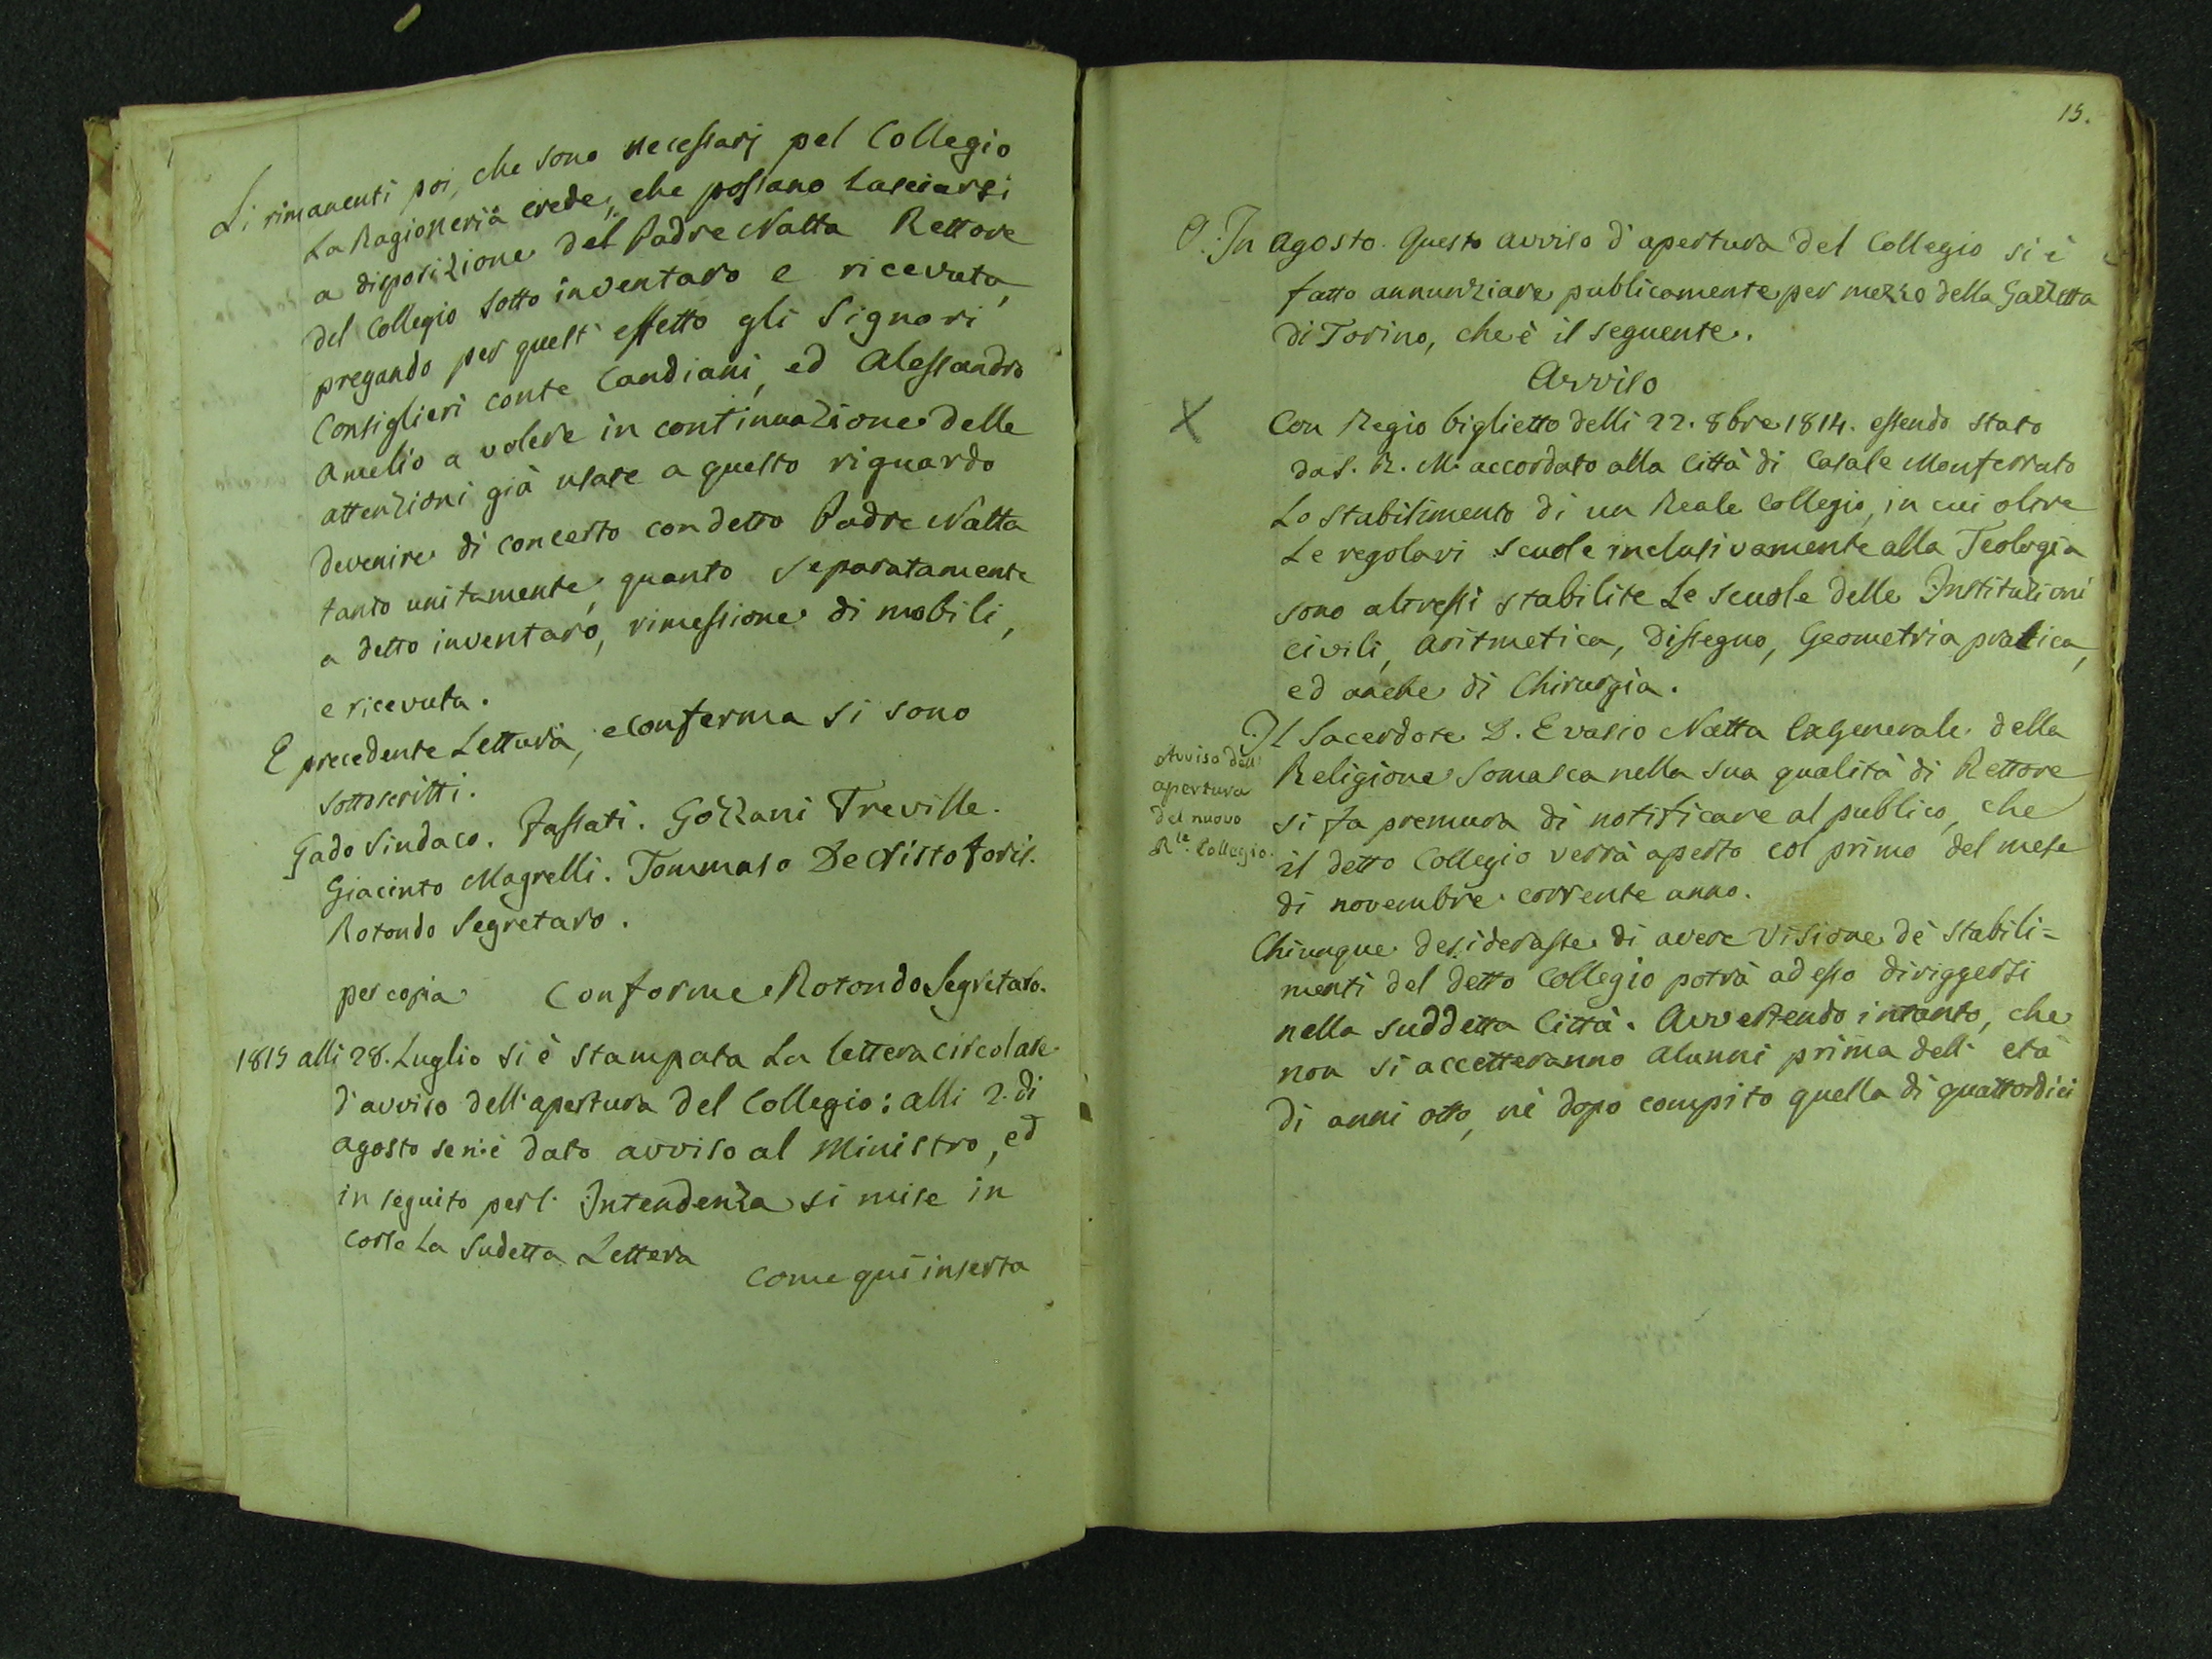 Li rimanenti poi, che sono necessarj pel Collegio
La Ragioneria crede, che possano lasciarsi
a disposizione del Padre Natta Rettore
del Collegio sotto inventaro e ricevuta,
pregando per quest' effetto gli Signori
Consiglieri conte Candiani, ed Alessandro
Amelio a volere in continuazione delle
attenzioni già usate a questo riguardo
devenire di concerto con detto Padre Natta
tanto unitamente, quanto separatamente
a detto inventaro, rimessione di mobili,
e ricevuta.
E precedente Lettura, e conferma si sono
sottoscritti.
Gado Sindaco. Fassati. Gozzani Treville.
Giacinto Magrelli. Tommaso De Cristoforis.
Rotondo Segretaro.
per copia Conforme Rotondo Segretaro.
1815 alli 28. Luglio si è stampata La lettera circolare
d'avviso dell'apertura del Collegio: alli 2. di
agosto se n'è dato avviso al Ministro, ed
in seguito per l'Intendenza si mise in
corso La sudetta Lettera
come quì inserta
15.
In agosto. Questo avviso d'apertura del Collegio si è
fatto annunziare publicamente per mezzo della Gazzetta
di Torino, che è il seguente.
Avviso
X
Con Regio biglietto delli 22. 8bre 1814. essendo stato
da S. R. M. accordato alla Città di Casale Monferrato
Lo stabilimento di un Reale Collegio, in cui oltre
Le regolari scuole inclusivamente alla Teologia
sono altressì stabilite Le scuole delle Instituzioni
civili, Aritmetica, Dissegno, Geometria pratica,
ed anche di Chirurgìa.
Avviso dell'
apertura
del nuovo
R.le Collegio.
Il Sacerdote D. Evasio Natta Exgenerale della
Religione Somasca nella sua qualità di Rettore
si fa premura di notificare al publico, che
il detto Collegio verrà aperto col primo del mese
di novembre corrente anno.
Chiunque desiderasse di avere visione de' stabili=
menti del detto Collegio potrà ad esso diriggersi
nella suddetta Città. Avvertendo intanto, che
non si accetteranno Alunni prima dell' età
di anni otto, nè dopo compito quella di quattordici